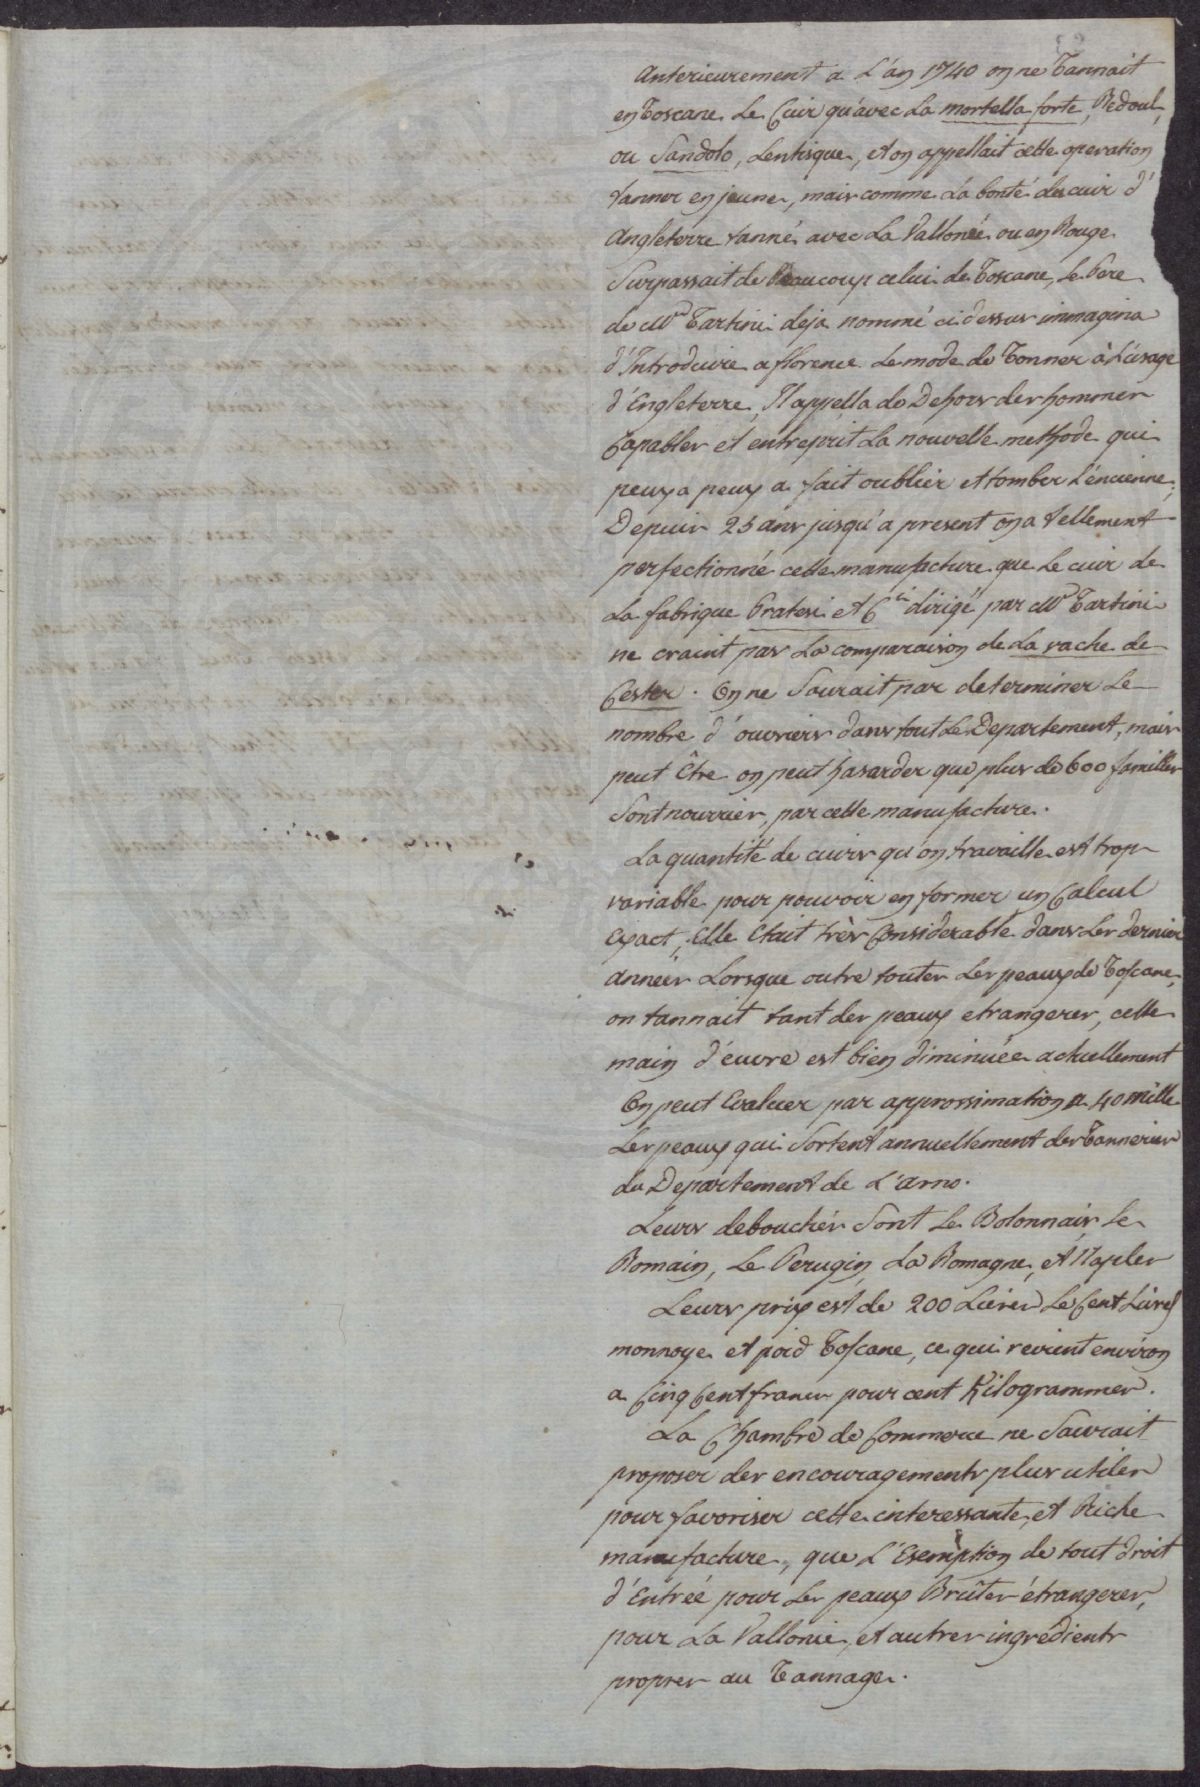 Anterieurement a L'an 1740 on ne Tannait
en Toscane Le Cuir qu'avec La mortella forte, Redoul,
ou Sandolo, Lentisque, et on appellait cette operation
tanner en jeune, mais comme La bonté du cuir d'
Angleterre tanné avec La Vallonée ou en Rouge
Surpassait de Beaucoup celui de Toscane, Le Pere
de Mr Tartini deja nommé ci dessus immagina
d'Introduire a florence Le mode de Tonner à L'usage
d'Engleterre, Il appella de Dehors des hommes
Capables et entreprit La nouvelle methode qui
peu a peu a fait oublier et tomber L'encienne;
Depuis 25 ans jusqu'a present on a tellement
perfectionné cette manufacture que Le cuir de
La fabrique Pratesi et Cie dirigé par Mr Tartini
ne craint pas La comparaison de La vache de
Cester. On ne Saurait pas determiner Le
nombre d'ouvriers dans tout Le Departement, mais
peut Être on peut hasarder que plus de 600 familles
Sont nourries, par cette manufacture.
La quantité de cuirs qu'on travaille est trop
variable pour pouvoir en former un Calcul
Exact, Elle Etait très Considerable dans Les dernier
années Lorsque outre toutes Les peaux de Toscane,
on tannait tant des peaux etrangeres, cette
main d'euvre est bien diminuée actuellement
On peut Evaluer par approssimation a 40 mille
Les peaux qui Sortent annuellement des Tanneries
du Departement de L'arno.
Leurs debouchés Sont Le Bolonnais, Le
Romain, Le Perugin, La Romagne, et Naples
Leurs prix est de 200 Livres Le Cent Livres
monnoye et poid Toscane, ce qui revient environ
a Cinq Cent francs pour cent Kilogrammes.
La Chambre de Commerce ne Saurait
proposer des encouragements plus utiles
pour favoriser cette interessante, et Riche
manufacture, que L'Esemption de tout droit
d'Entrée pour Les peaux Brûtes étrangeres,
pour La Vallonie, et autres ingredients
propres au Tannage.